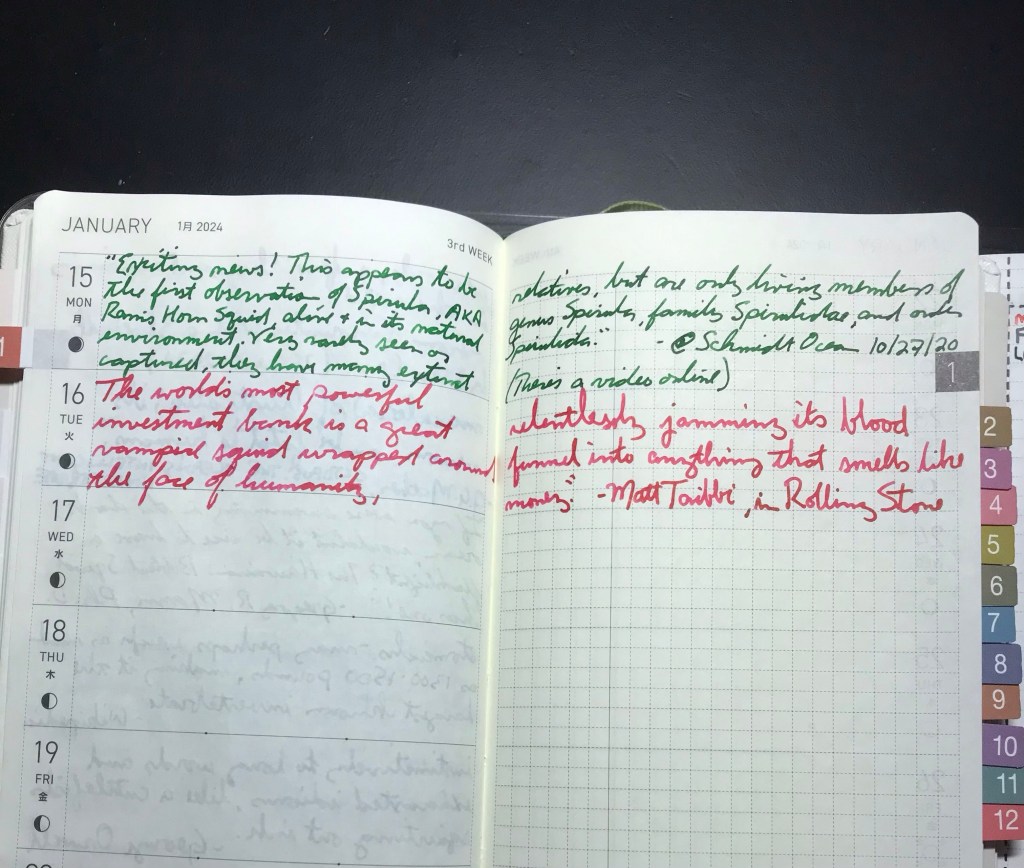 JANUARY 1月 2024
3rd WEEK
15
MON
月
"Exciting news! This appears to be
the first observation of Spirula, AKA
Ram's Horn Squid, alive + in its natural
environment. Very rarely seen or
captured, they have many extinct
relatives, but are only living members of
genus Spirula, family Spirulidae, and order
Spirulida." - @SchmidtOcean 10/27/20
(There's a video online)
1
1
16
TUE
火
The worlds most powerful
investment bank is a great
vampire squid wrapped around
the face of humanity,
relentlessly jamming its blood
funnel into anything that smells like
money." -Matt Taibbi, in Rolling Stone
17
WED
水
18
THU
木
19
FRI
金
2
3
4
5
6
7
8
9
10
11
12